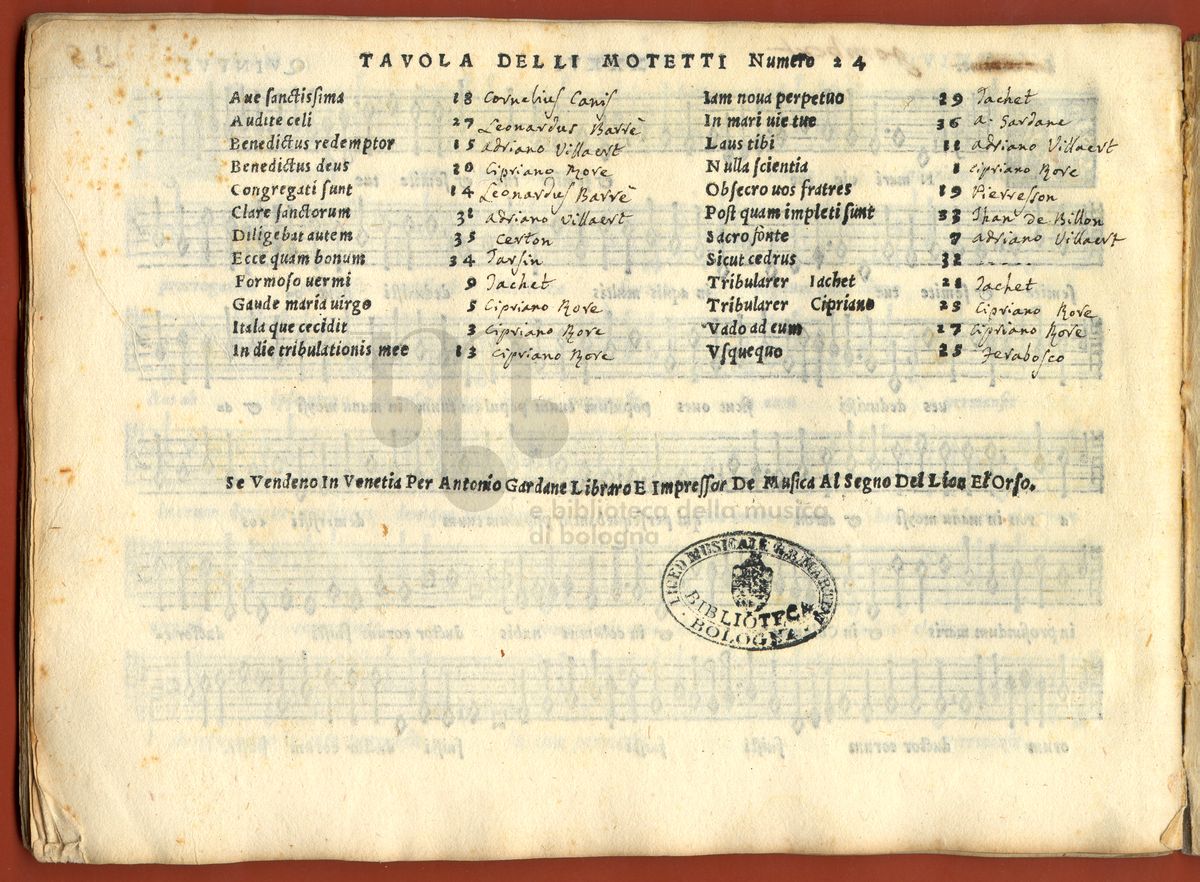 TAVOLA DELLI MOTETTI Numero 24
Aue sanctissima 18 Cornelius Canis
Audite celi 27 Leonardus Barrè
Benedictus redemptor 15 Adriano Villaert
Benedictus deus 20 Cipriano Rore
Congregati sunt 14 Leonardus Barrè
Clare sanctorum 31 Adriano Villaert
Diligebat autem 35 Certon
Ecce quam bonum 34 Jarsin
Formoso uermi 9 Jachet
Gaude maria uirgo 5 Cipriano Rore
Itala que cecidit 3 Cipriano Rore
In die tribulationis mee 13 Cipriano Rore
Iam noua perpetuo 29 Jachet
In mari uie tue 36 A. Gardane
Laus tibi 11 Adriano Villaert
Nulla scientia 1 Cipriano Rore
Obsecro uos fratres 19 Pierresson
Post quam impleti sunt 33 Jhan De Billon
Sacro fonte 7 Adriano Villaert
Sicut cedrus 32 .....
Tribularer Iachet 21 Jachet
Tribularer Cipriano 23 Cipriano Rore
Vado ad eum 17 Cipriano Rore
Vsquequo 25 Ferabosco
Se Vendeno In Venetia Per Antonio Gardane Libraro E Impressor De Musica Al Segno Del Lion Et Orso.
e biblioteca della musica
di bologna
LICEO MUSICALE G. B. MARTINI
BIBLIOTECA
BOLOGNA